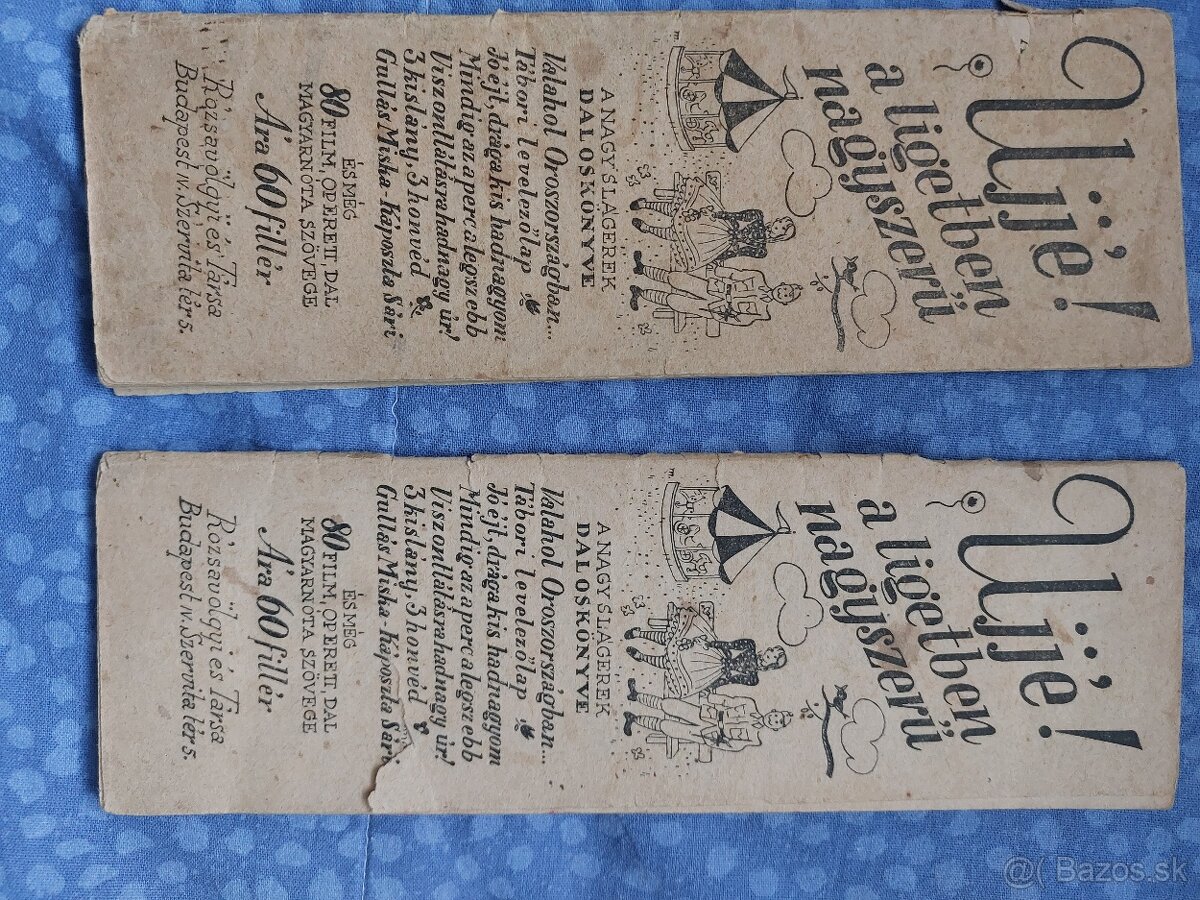 Ujjé!
a ligetben
nagyszerű
A NAGY SLÁGEREK
DALOSKÖNYVE
Valahol Oroszországban...
Tábori levelezőlap
Jó éjt, drága kis hadnagyom
Mindig az a perc a legszebb
Viszontlátásra hadnagy úr!
3 kislány, 3 honvéd
Gullás Miska - Káposzta Sári
ÉS MÉG
80 FILM, OPERETT, DAL
MAGYARNÓTA SZÖVEGE
Ára 60 fillér
Rózsavölgyi és Társa
Budapest IV. Szervita tér 5.
Ujjé!
a ligetben
nagyszerű
A NAGY SLÁGEREK
DALOSKÖNYVE
Valahol Oroszországban...
Tábori levelezőlap
Jó éjt, drága kis hadnagyom
Mindig az a perc a legszebb
Viszontlátásra hadnagy úr!
3 kislány, 3 honvéd
Gullás Miska - Káposzta Sári
ÉS MÉG
80 FILM, OPERETT, DAL
MAGYARNÓTA SZÖVEGE
Ára 60 fillér
Rózsavölgyi és Társa
Budapest IV. Szervita tér 5.
@( Bazos.sk